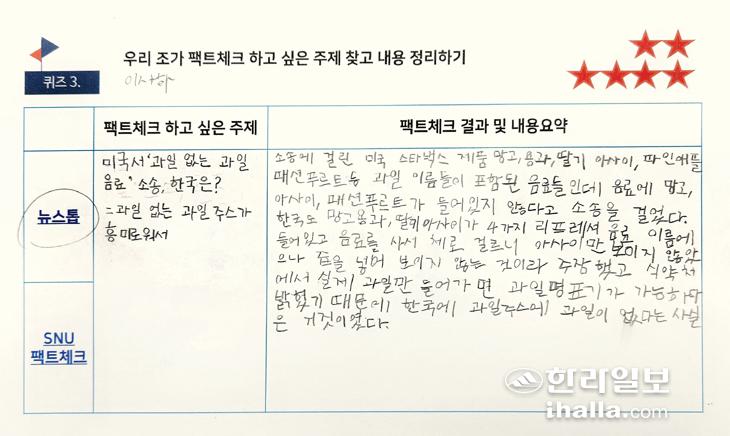 우리 조가 팩트체크 하고 싶은 주제 찾고 내용 정리하기
퀴즈 3.
이사항
팩트체크 하고 싶은 주제
팩트체크 결과 및 내용요약
뉴스톱
미국서 '과일 없는 과일
음료' 소송, 한국은?
=과일 없는 과일주스가
흥미로워서
소송에 걸린 미국 스타벅스 제품 망고, 용과, 딸기 아사이, 파인애플
패션푸르트등 과일 이름들이 포함된 음료들인데 음료에 망고,
아사이, 패션푸르트가 들어있지 않다고 소송을 걸었다.
한국도 망고용과, 딸기아사이가 4가지 리프레셔 음료 이름에
들어있고 음료를 사서 체로 걸르니 아사이만 보이지 않았
으나 즙을 넣어 보이지 않는 것이라 주장했고 식약처
에서 실제 과일만 들어가면 과일명표기가 가능하다
밝혔기 때문에 한국에 과일주스에 과일이 없다는 사실
은 거짓이였다.
SNU
팩트체크
한라일보
ihalla.com